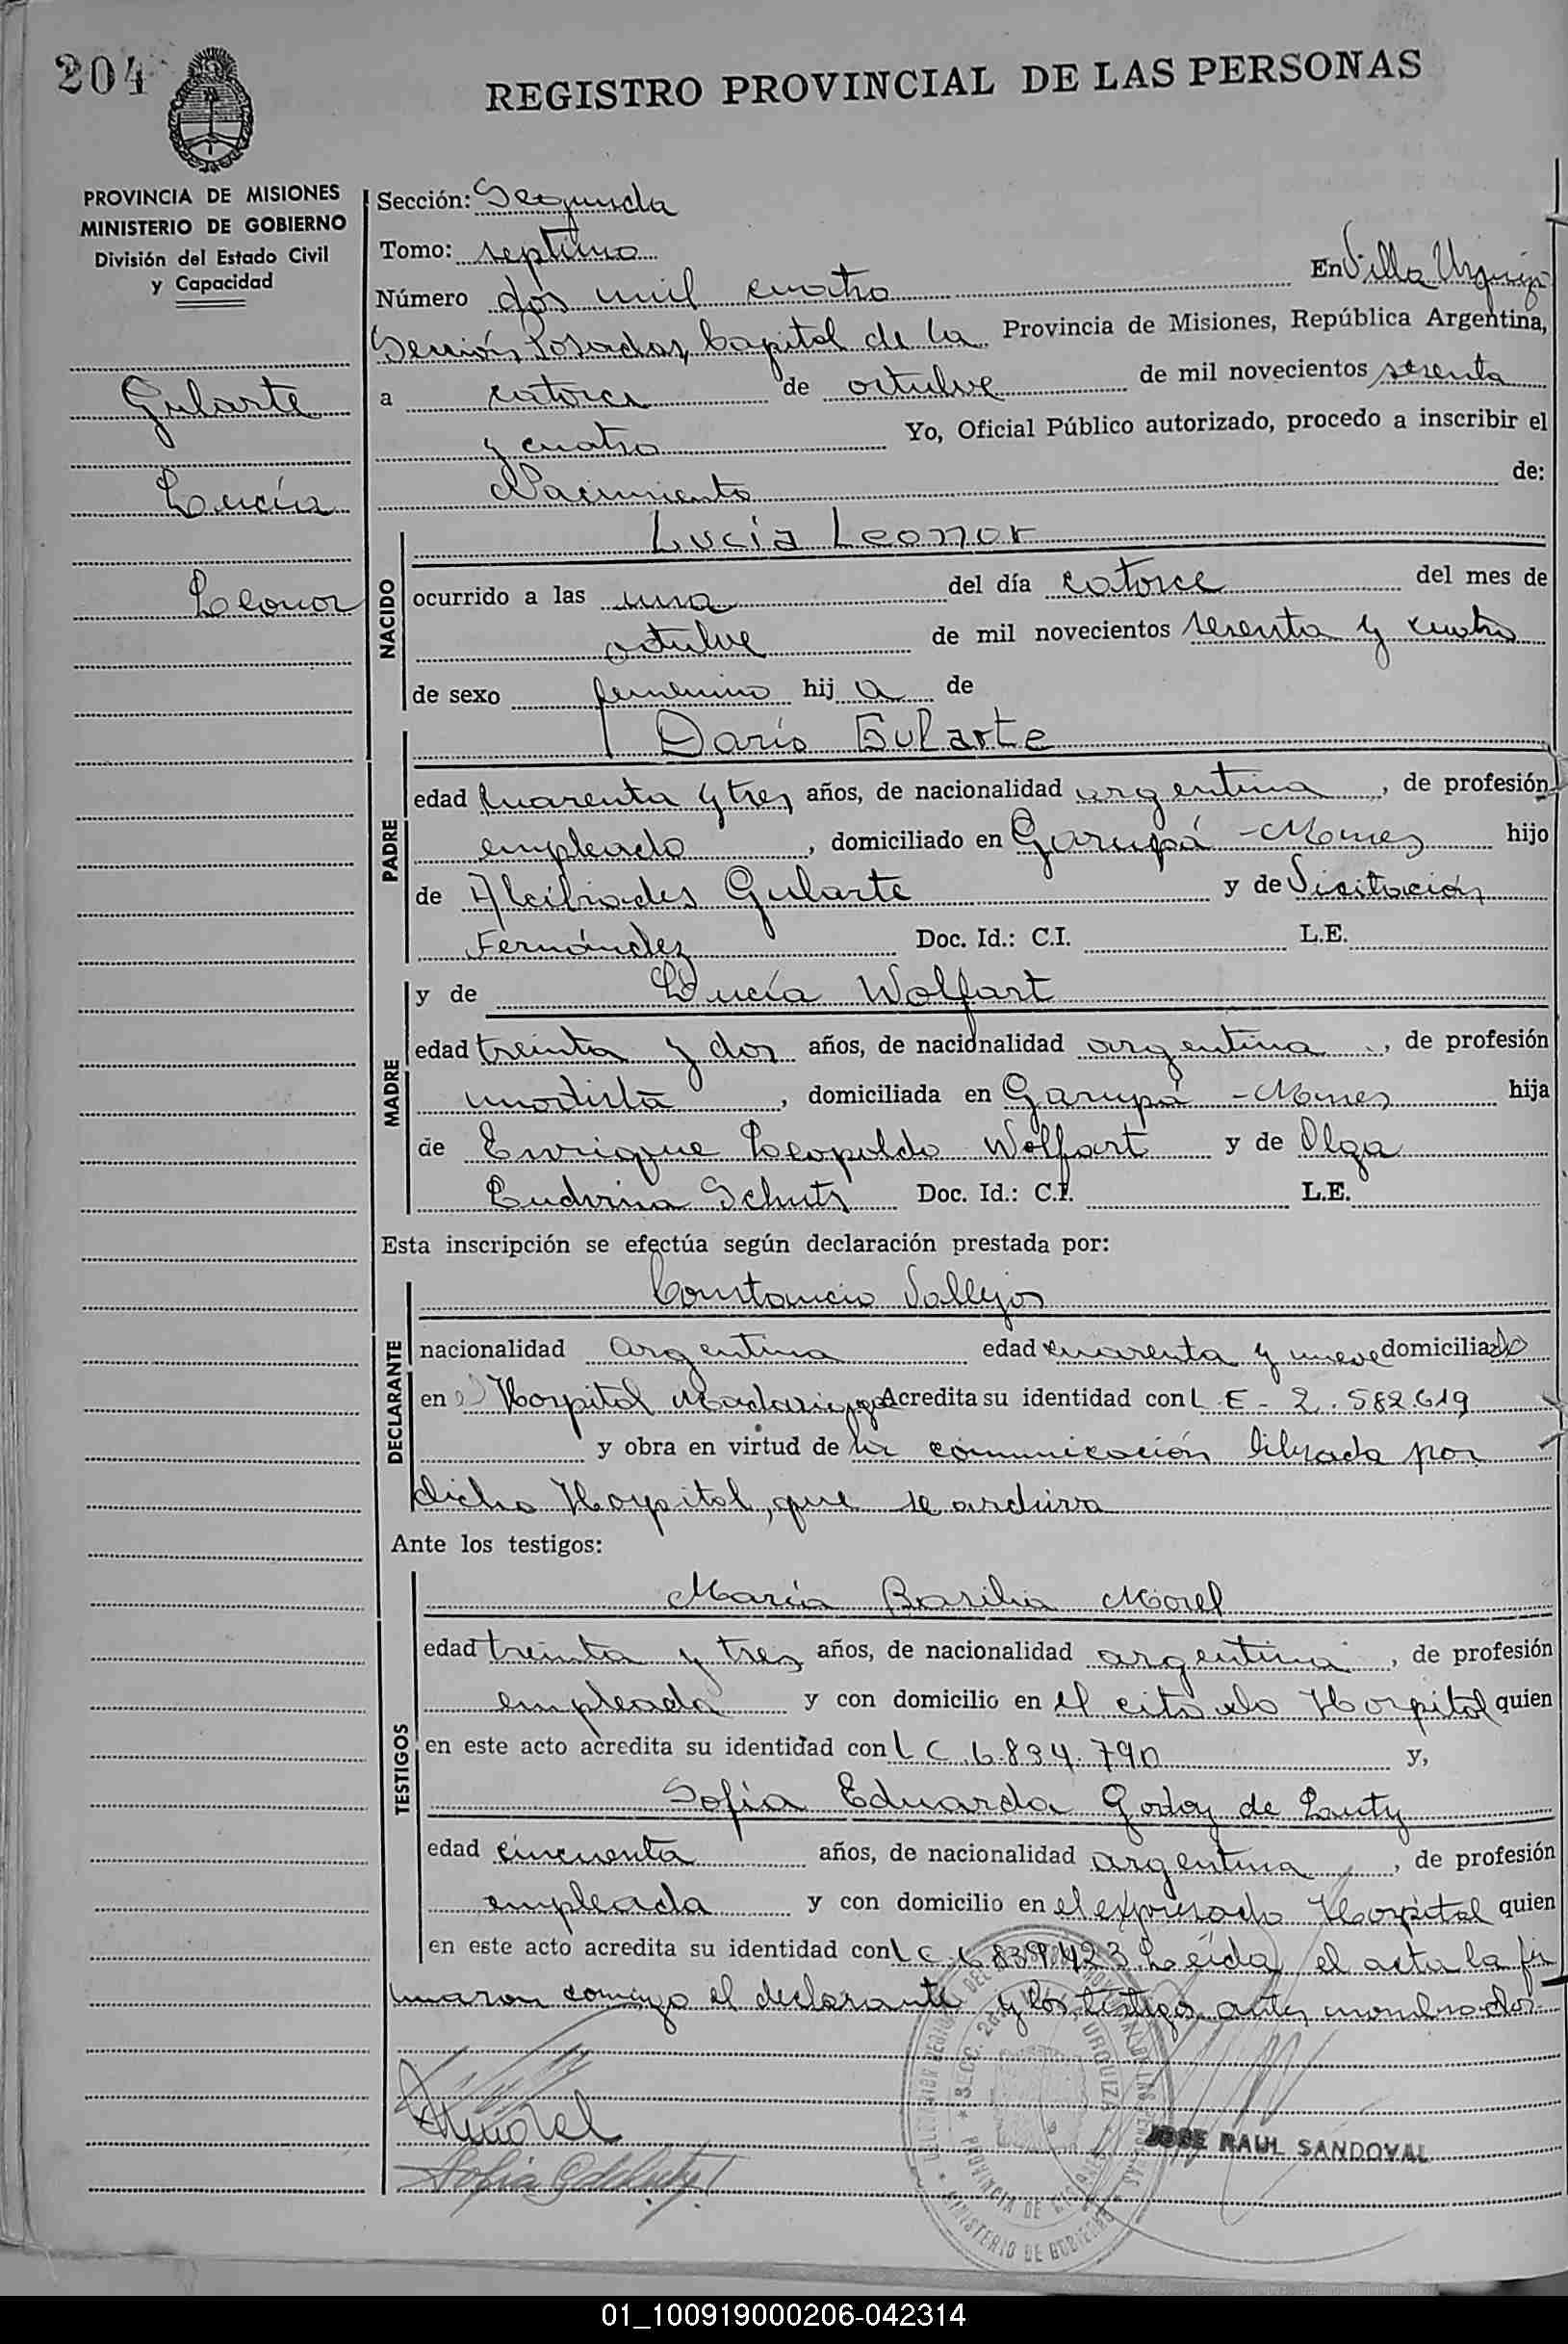 204
REGISTRO PROVINCIAL DE LAS PERSONAS
PROVINCIA DE MISIONES
MINISTERIO DE GOBIERNO
División del Estado Civil
y Capacidad
Gularte
Lucía
Leonor
Sección: Segunda
Tomo: septimo
Número dos mil cuatro En Villa Urquiza
Sección Posadas, Capital de la Provincia de Misiones, República Argentina,
a catorce de octubre de mil novecientos setenta
y cuatro Yo, Oficial Público autorizado, procedo a inscribir el
Nacimiento de:
NACIDO
Lucia Leonor
ocurrido a las una del día catorce del mes de
octubre de mil novecientos setenta y cuatro
de sexo femenino hij a de
PADRE
Darío Gularte
edad cuarenta y tres años, de nacionalidad argentina, de profesión
empleado, domiciliado en Garupá - Mnes hijo
de Alcibiades Gularte y de Visitación
Fernández Doc. Id.: C.I. L.E.
MADRE
y de Lucía Wolfart
edad treinta y dos años, de nacionalidad argentina, de profesión
modista, domiciliada en Garupá - Mnes hija
de Enrique Leopoldo Wolfart y de Olga
Ludvina Schutz Doc. Id.: C.I. L.E.
Esta inscripción se efectúa según declaración prestada por:
DECLARANTE
Constancio Vallejos
nacionalidad argentina edad cuarenta y nueve domiciliado
en el Hospital Madariaga Acredita su identidad con L E - 2.582.619
y obra en virtud de la comunicación librada por
dicho Hospital, que se archiva
Ante los testigos:
TESTIGOS
María Basilia Morel
edad treinta y tres años, de nacionalidad argentina, de profesión
empleada y con domicilio en el citado Hospital quien
en este acto acredita su identidad con L C 6.834.790 y,
Sofia Eduarda Godoy de Luty
edad cincuenta años, de nacionalidad argentina, de profesión
empleada y con domicilio en el expresado Hospital quien
en este acto acredita su identidad con L C 6.839.423 Leída el acta la fir
maron conmigo el declarante y los testigos antes nombrados
SECC. 2da. URQUIZA
PROVINCIA DE MISIONES
MINISTERIO DE GOBIERNO
JOSE RAUL SANDOVAL
01_100919000206-042314